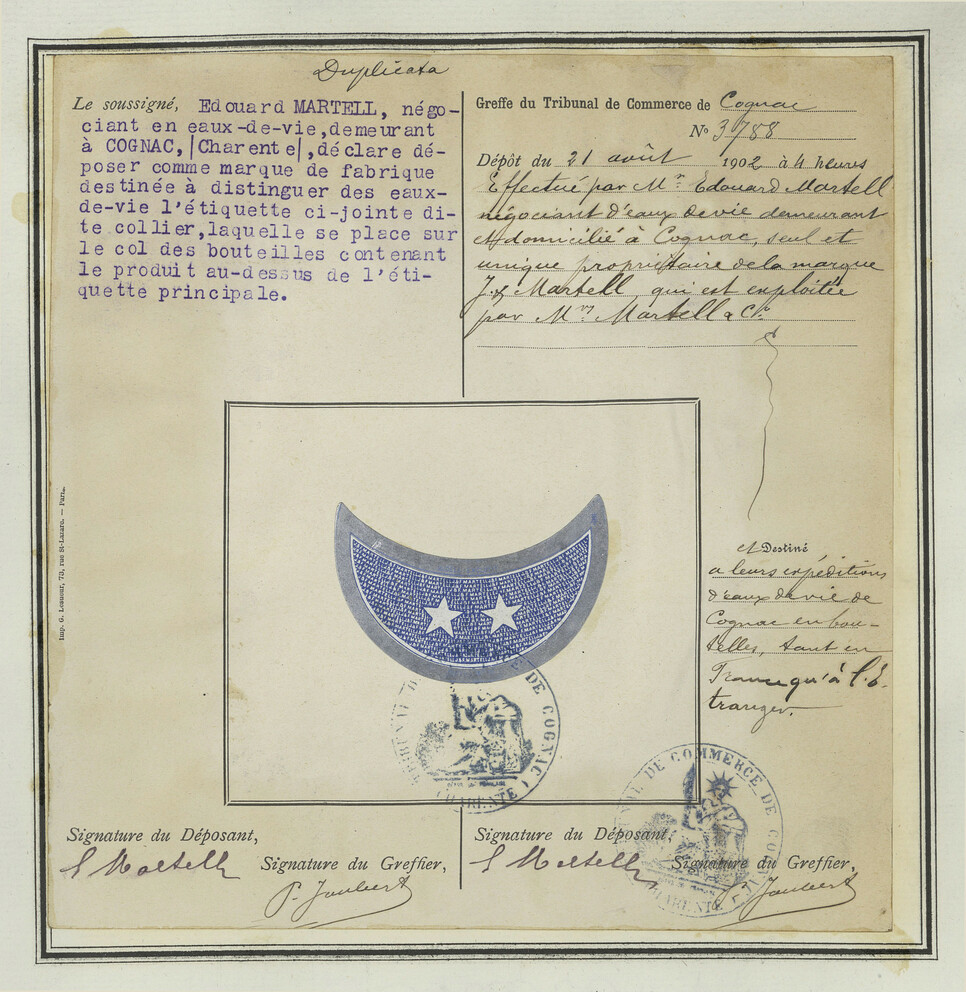 Duplicata
Le soussigné, Edouard MARTELL, négo-
ciant en eaux-de-vie,demeurant
à COGNAC,|Charente|,déclare dé-
poser comme marque de fabrique
destinée à distinguer des eaux-
de-vie l'étiquette ci-jointe di-
te collier,laquelle se place sur
le col des bouteilles contenant
le produit au-dessus de l'éti-
quette principale.
Greffe du Tribunal de Commerce de Cognac
No 3788
Dépôt du 21 août 1902 à 4 heures
Effectué par Mr Edouard Martell
négociant d'eaux de vie demeurant
et domicilié à Cognac, seul et
unique propriétaire de la marque
J. & Martell qui est exploitée
par Mrs Martell & Cie
et Destiné
a leurs expéditions
d'eaux de vie de
Cognac en bou-
telles, tant en
France qu'à l'É-
tranger.
Imp. G. Lesnour, 73, rue St-Lazare. — Paris.
TRIBUNAL DE COGNAC
CHARENTE
TRIBUNAL DE COMMERCE DE COGNAC
CHARENTE
Signature du Déposant,
E Martell
Signature du Greffier,
P. Joubert
Signature du Déposant,
E Martell
Signature du Greffier,
Joubert